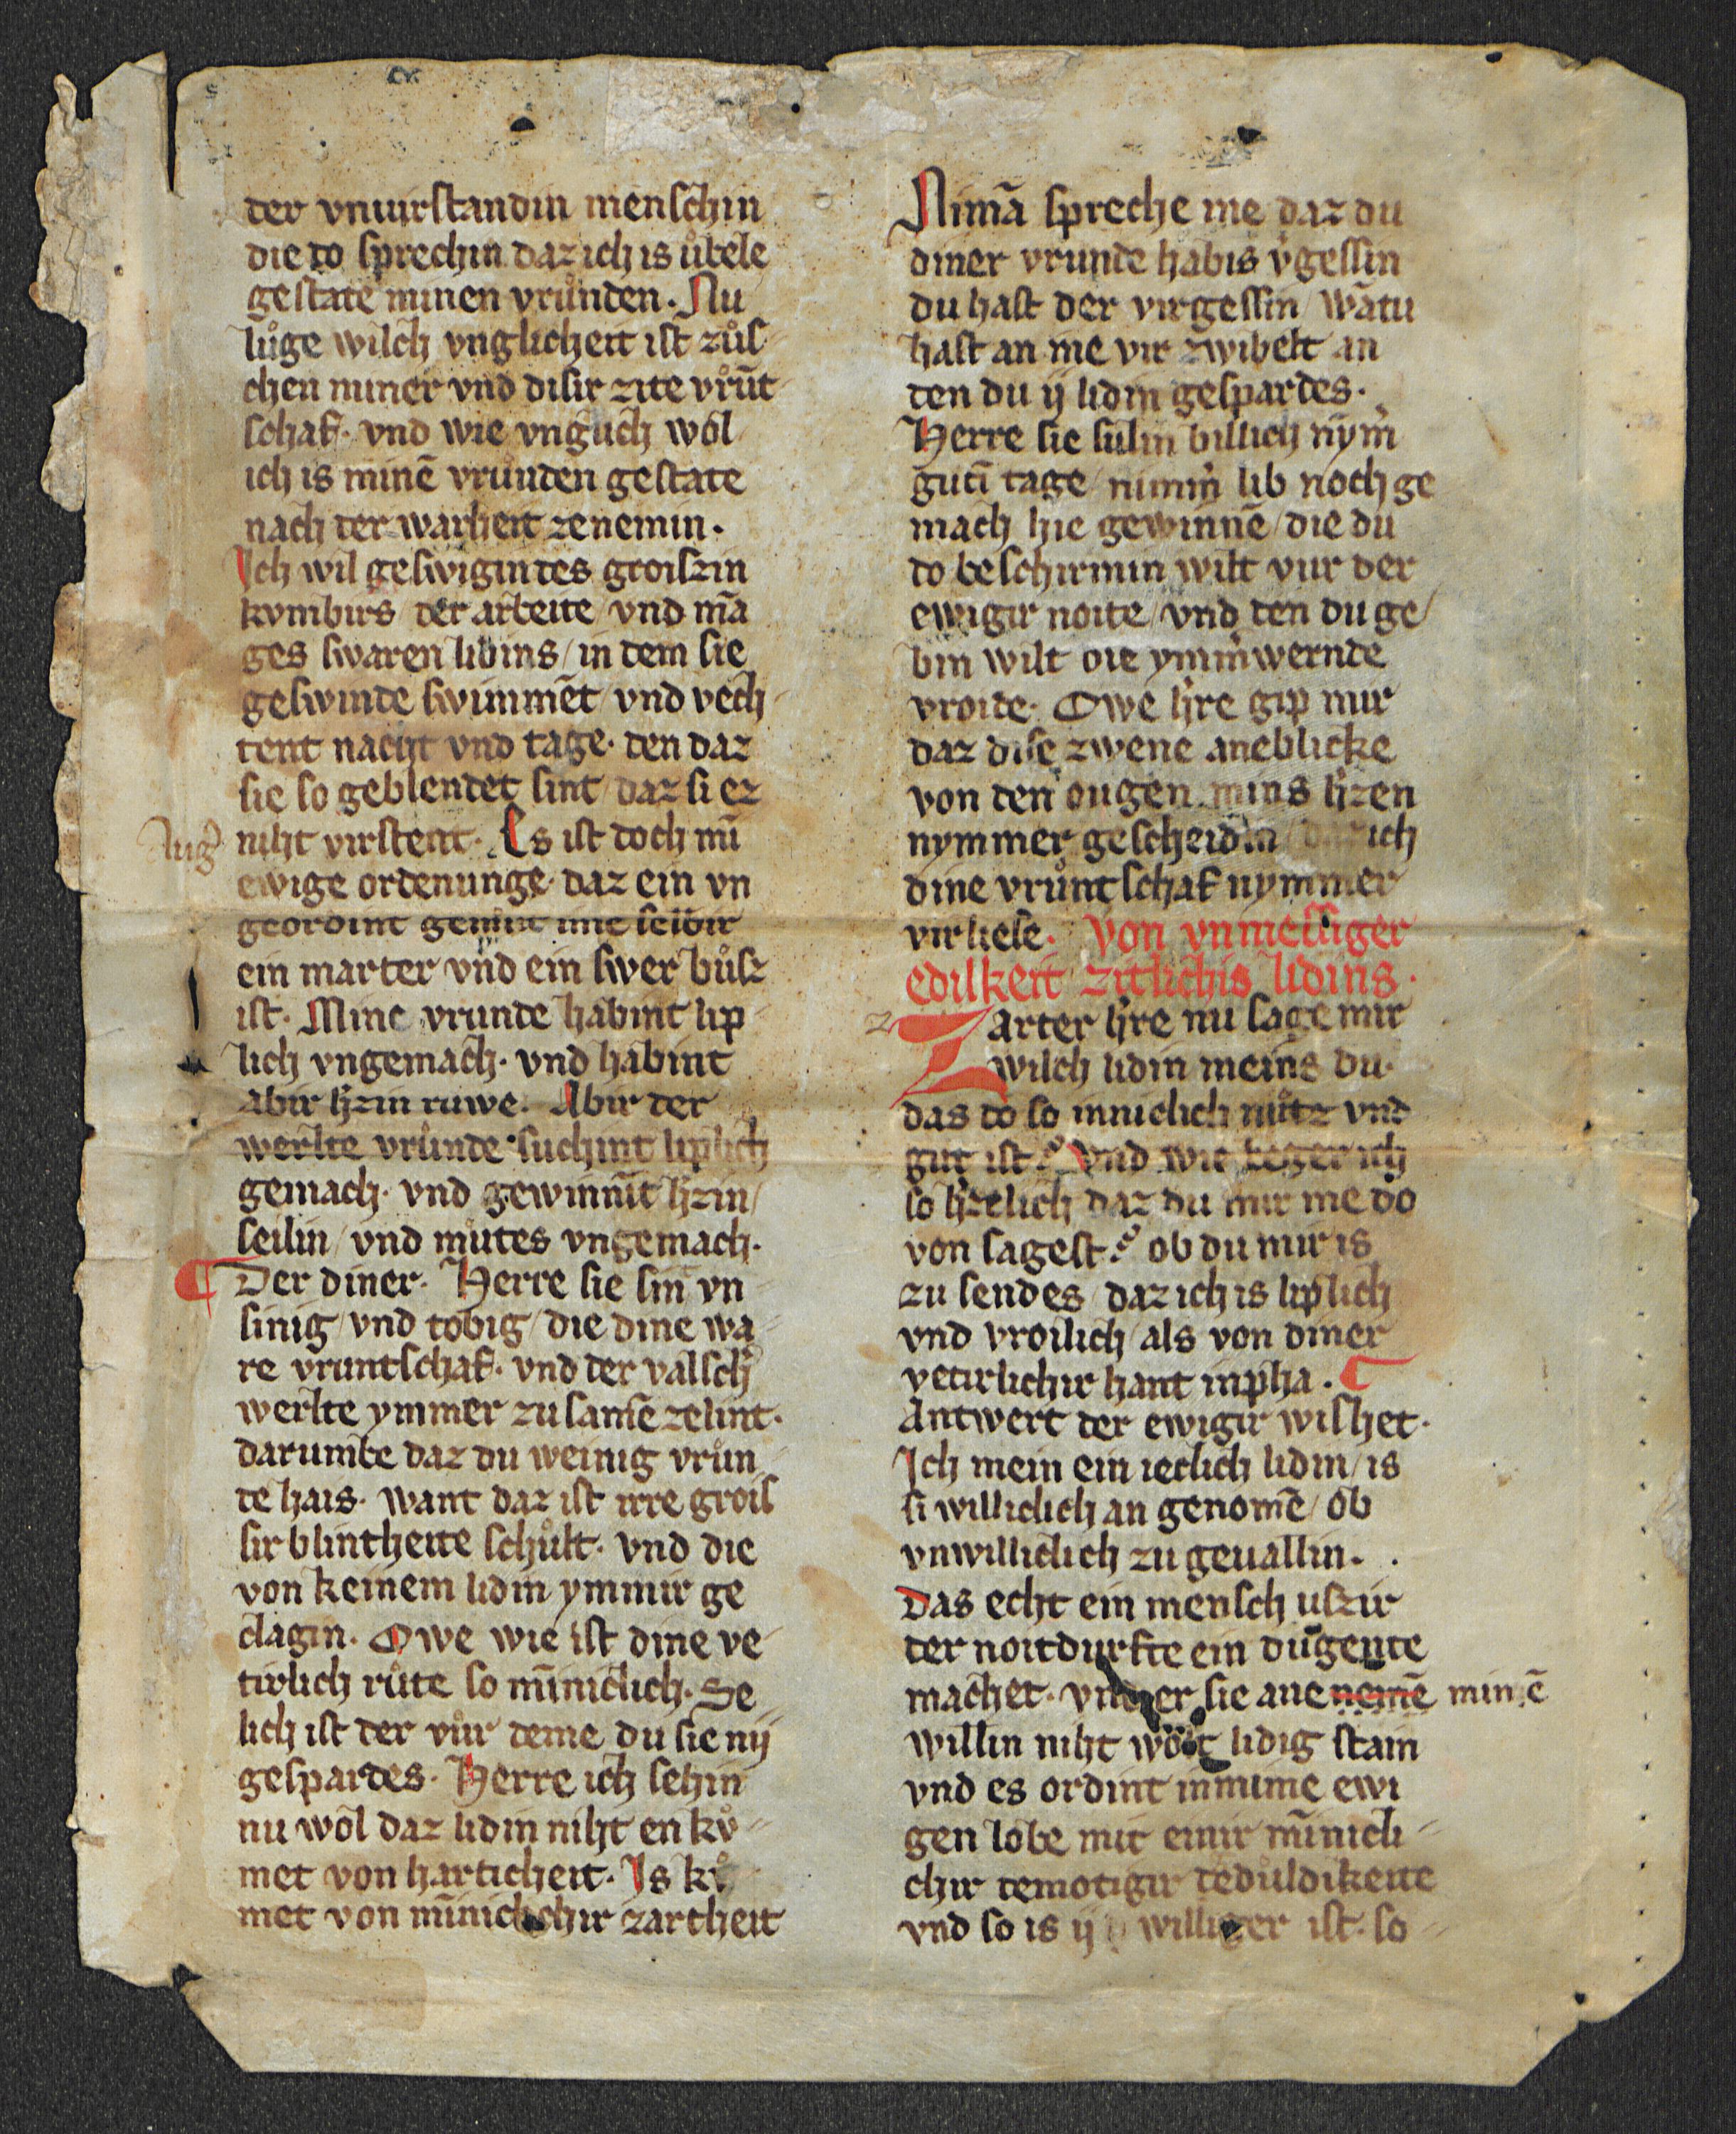 der vnuirstandin menschin
die do sprechin daz ich is ůbele
gestate minen vrůnden. Nu
lůge wilch vnglicheit ist zůs
chen miner vnd disir zite vrůnt
schaf. vnd wie vnglich wol
ich is minē vrůnden gestate
nach der warheit zenemin.
Ich wil geswigin des groiszin
kvmbirs der arbeite / vnd mā
ges swaren lidins / in dem sie
geswinde swimmēt / vnd vech
tent nacht vnd tage. den daz
sie so geblendet sint / daz si ez
Aug niht virstent. Es ist doch mī
ewige ordenunge. daz ein vn
geordint gemůt ime selbir
ein marter vnd ein swer bůsz
ist. Mine vrunde habint lip
lich vngemach. vnd habint
abir h'zin ruwe. Abir der
werlte vrůnde suchint liplich
gemach. vnd gewinnīt h'zin /
seilin / vnd můtes vngemach.
¶ Der diner. Herre sie sin vn
sinig / vnd tobig / die dine wa
re vruntschaf. vnd der valsch'
werlte ymmer zu samē zelint.
darumbe daz du weinig vrůn
de hais. want daz ist irre grois
sir blintheite schůlt. vnd die
von keinem lidin ymmir ge
clagin. Owe wie ist dine ve
tirlich růte so mīniclich. Se
lich ist der vůr deme du sie nij
gespardes. Herre ich sehin
nu wol daz lidin niht en ků
met von harticheit. Is ků
met von mīniclichir zartheit
Nimā spreche me daz du
diner vrunde habis v'gessin
du hast der virgessin / wātu
hast an me vir zwibelt an
den du ij lidin gespardes.
Herre sie sulin billich nym'
gutī tage / nimm' lib noch ge
mach hie gewinnē / die du
do beschirmin wilt vur der
ewigir noite / vnd den du ge /
bin wilt die ymm'wernde
vroide. Owe h're gip mir
daz dise zwene aneblicke
von den ougen mins h'zen
nymmer gescheidin / daz ich
dine vrůntschaf nymmer
virliese. Von vnmessiger
edilkeit zitlichis lidins.
z Zarter h're nu sage mir
wilch lidin meins du.
das do so inniclich nůtz vnd
gut ist? Vnd wie beger ich
so h'zelich daz du mir me do
von sagest? ob du mir is
zu sendes / daz ich is liplich
vnd vroilich / als von diner
vetirlichir hant inpha. ¶
Antwert der ewigir wishet.
Ich mein ein ieclich lidin / is
si williclich an genomē / ob
vnwilliclich zu geuallin.
Das echt ein mensch uszir
der noitdurfte ein dūgente
machet. vnd er sie ane nemē minē
willin niht wolt lidig stain
vnd es ordint in mime ewi
gen lobe mit einir mīnicli
chir demotigir gedůldikeite
vnd so is ij williger ist. so